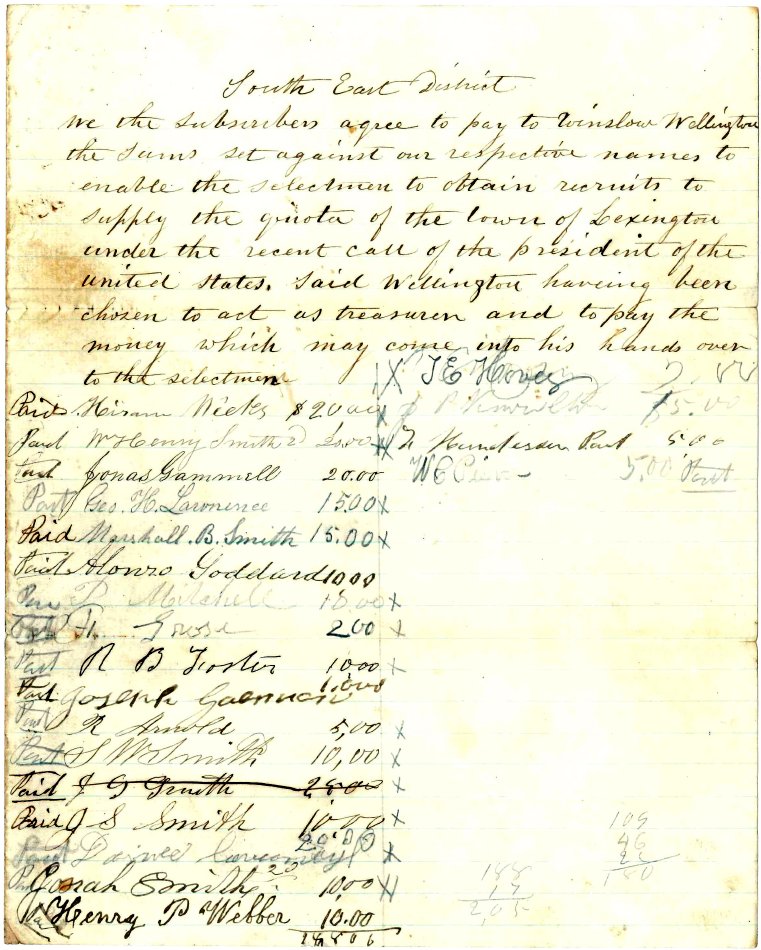 South East District
We the Subscribers agree to pay to Winslow Wellington
the Sums set against our respective names to
enable the selectmen to obtain recruits to
supply the quota of the town of Lexington
under the recent call of the president of the
united states. Said Wellington haveing been
chosen to act as treasurer and to pay the
money which may come into his hands over
to the selectmen
X T E Hovey
Paid Hiram Weeks $20.00 15.00
Paid Wm Henry Smith 2d 20.00 X Henderson Paid 5.00
Paid Jonas Gammell 20.00 5.00 Paid
Paid Geo. H. Lawrence 15.00 X
Paid Marshall. B. Smith 15.00 X
Paid Alonzo Goddard 10.00
P Mitchell 10.00 X
Paid Fr. Grose 2.00 X
Paid R B Foster 10.00 X
Paid Joseph 1.000
Paid R Arnold 5,00 X
Paid S W Smith 10,00 X
Paid J S Smith 20.00 X
Paid J S Smith 10.00 X
Paid 20.00 X
Josiah Smith 20 10.00 X
Paid Henry P Webber 10.00
188
17
2,05
109
46
180